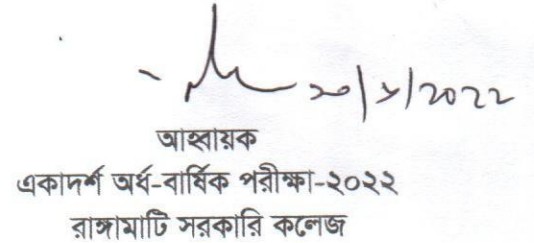 ২০/ /২০২২
আহ্বায়ক
একাদর্শ অর্ধ-বার্ষিক পরীক্ষা-২০২২
রাঙ্গামাটি সরকারি কলেজ